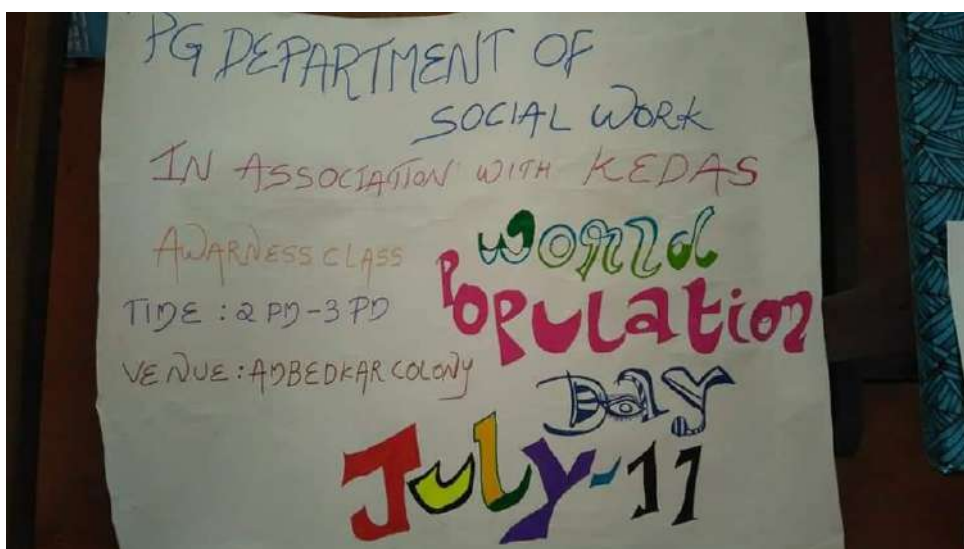 PG DEPARTMENT OF
SOCIAL WORK
IN ASSOCIATION WITH KEDAS
AWARNESS CLASS
TIME : 2 PM-3 PM
VENUE : AMBEDKAR COLONY
World
Population
Day
July-11